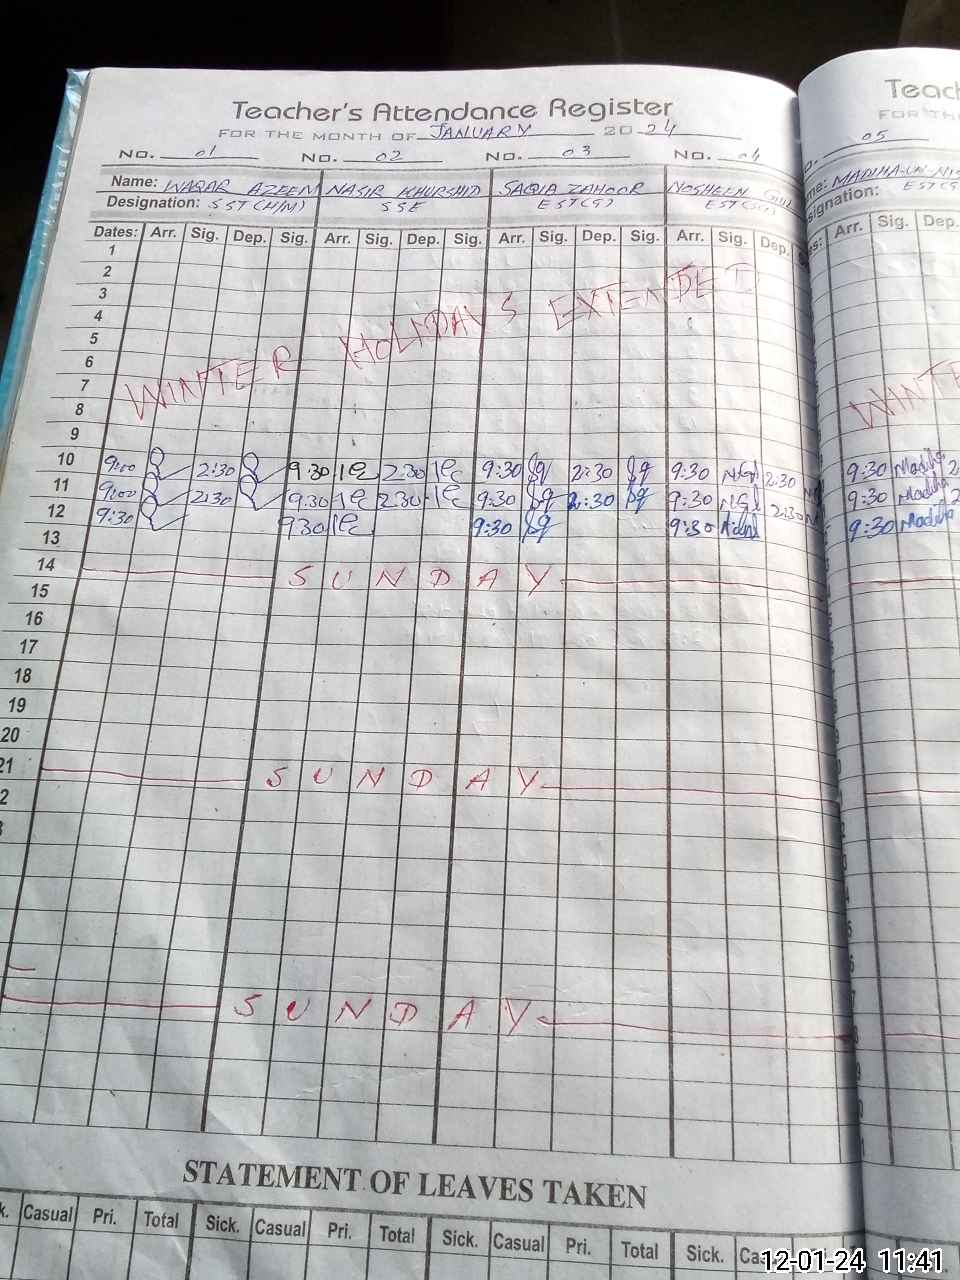 Teacher's Attendance Register
FOR THE MONTH OF JANUARY 2024
No. 01 No. 02 No. 03 No. 04
Name: WAQAR AZEEM NASIR KHURSHID SAQIA ZAHOOR NOSHEEN
Designation: SST (H/M) SSE EST(G)
Dates: Arr. Sig. Dep. Sig. Arr. Sig. Dep. Sig. Arr. Sig. Dep. Sig. Arr. Sig. Dep.
1
2
3
4
5
6
7
8
9
WINTER HOLIDAYS EXTENDET
10 9:00 2:30 9:30 2:30 9:30 2:30 9:30 2:30
11 9:00 2:30 9:30 2:30 9:30 2:30 9:30 2:30
12 9:30 9:30 9:30 9:30
13
14 SUNDAY
15
16
17
18
19
20
21 SUNDAY
2
SUNDAY
STATEMENT OF LEAVES TAKEN
k. Casual Pri. Total Sick. Casual Pri. Total Sick. Casual Pri. Total Sick. Cas
Teach
FOR THE
05
me: MADIHA-UN-NIS
signation: EST(G
es: Arr. Sig. Dep.
WINTE
9:30 Madiha 2
9:30 Madiha 2
9:30 Madiha
12-01-24 11:41